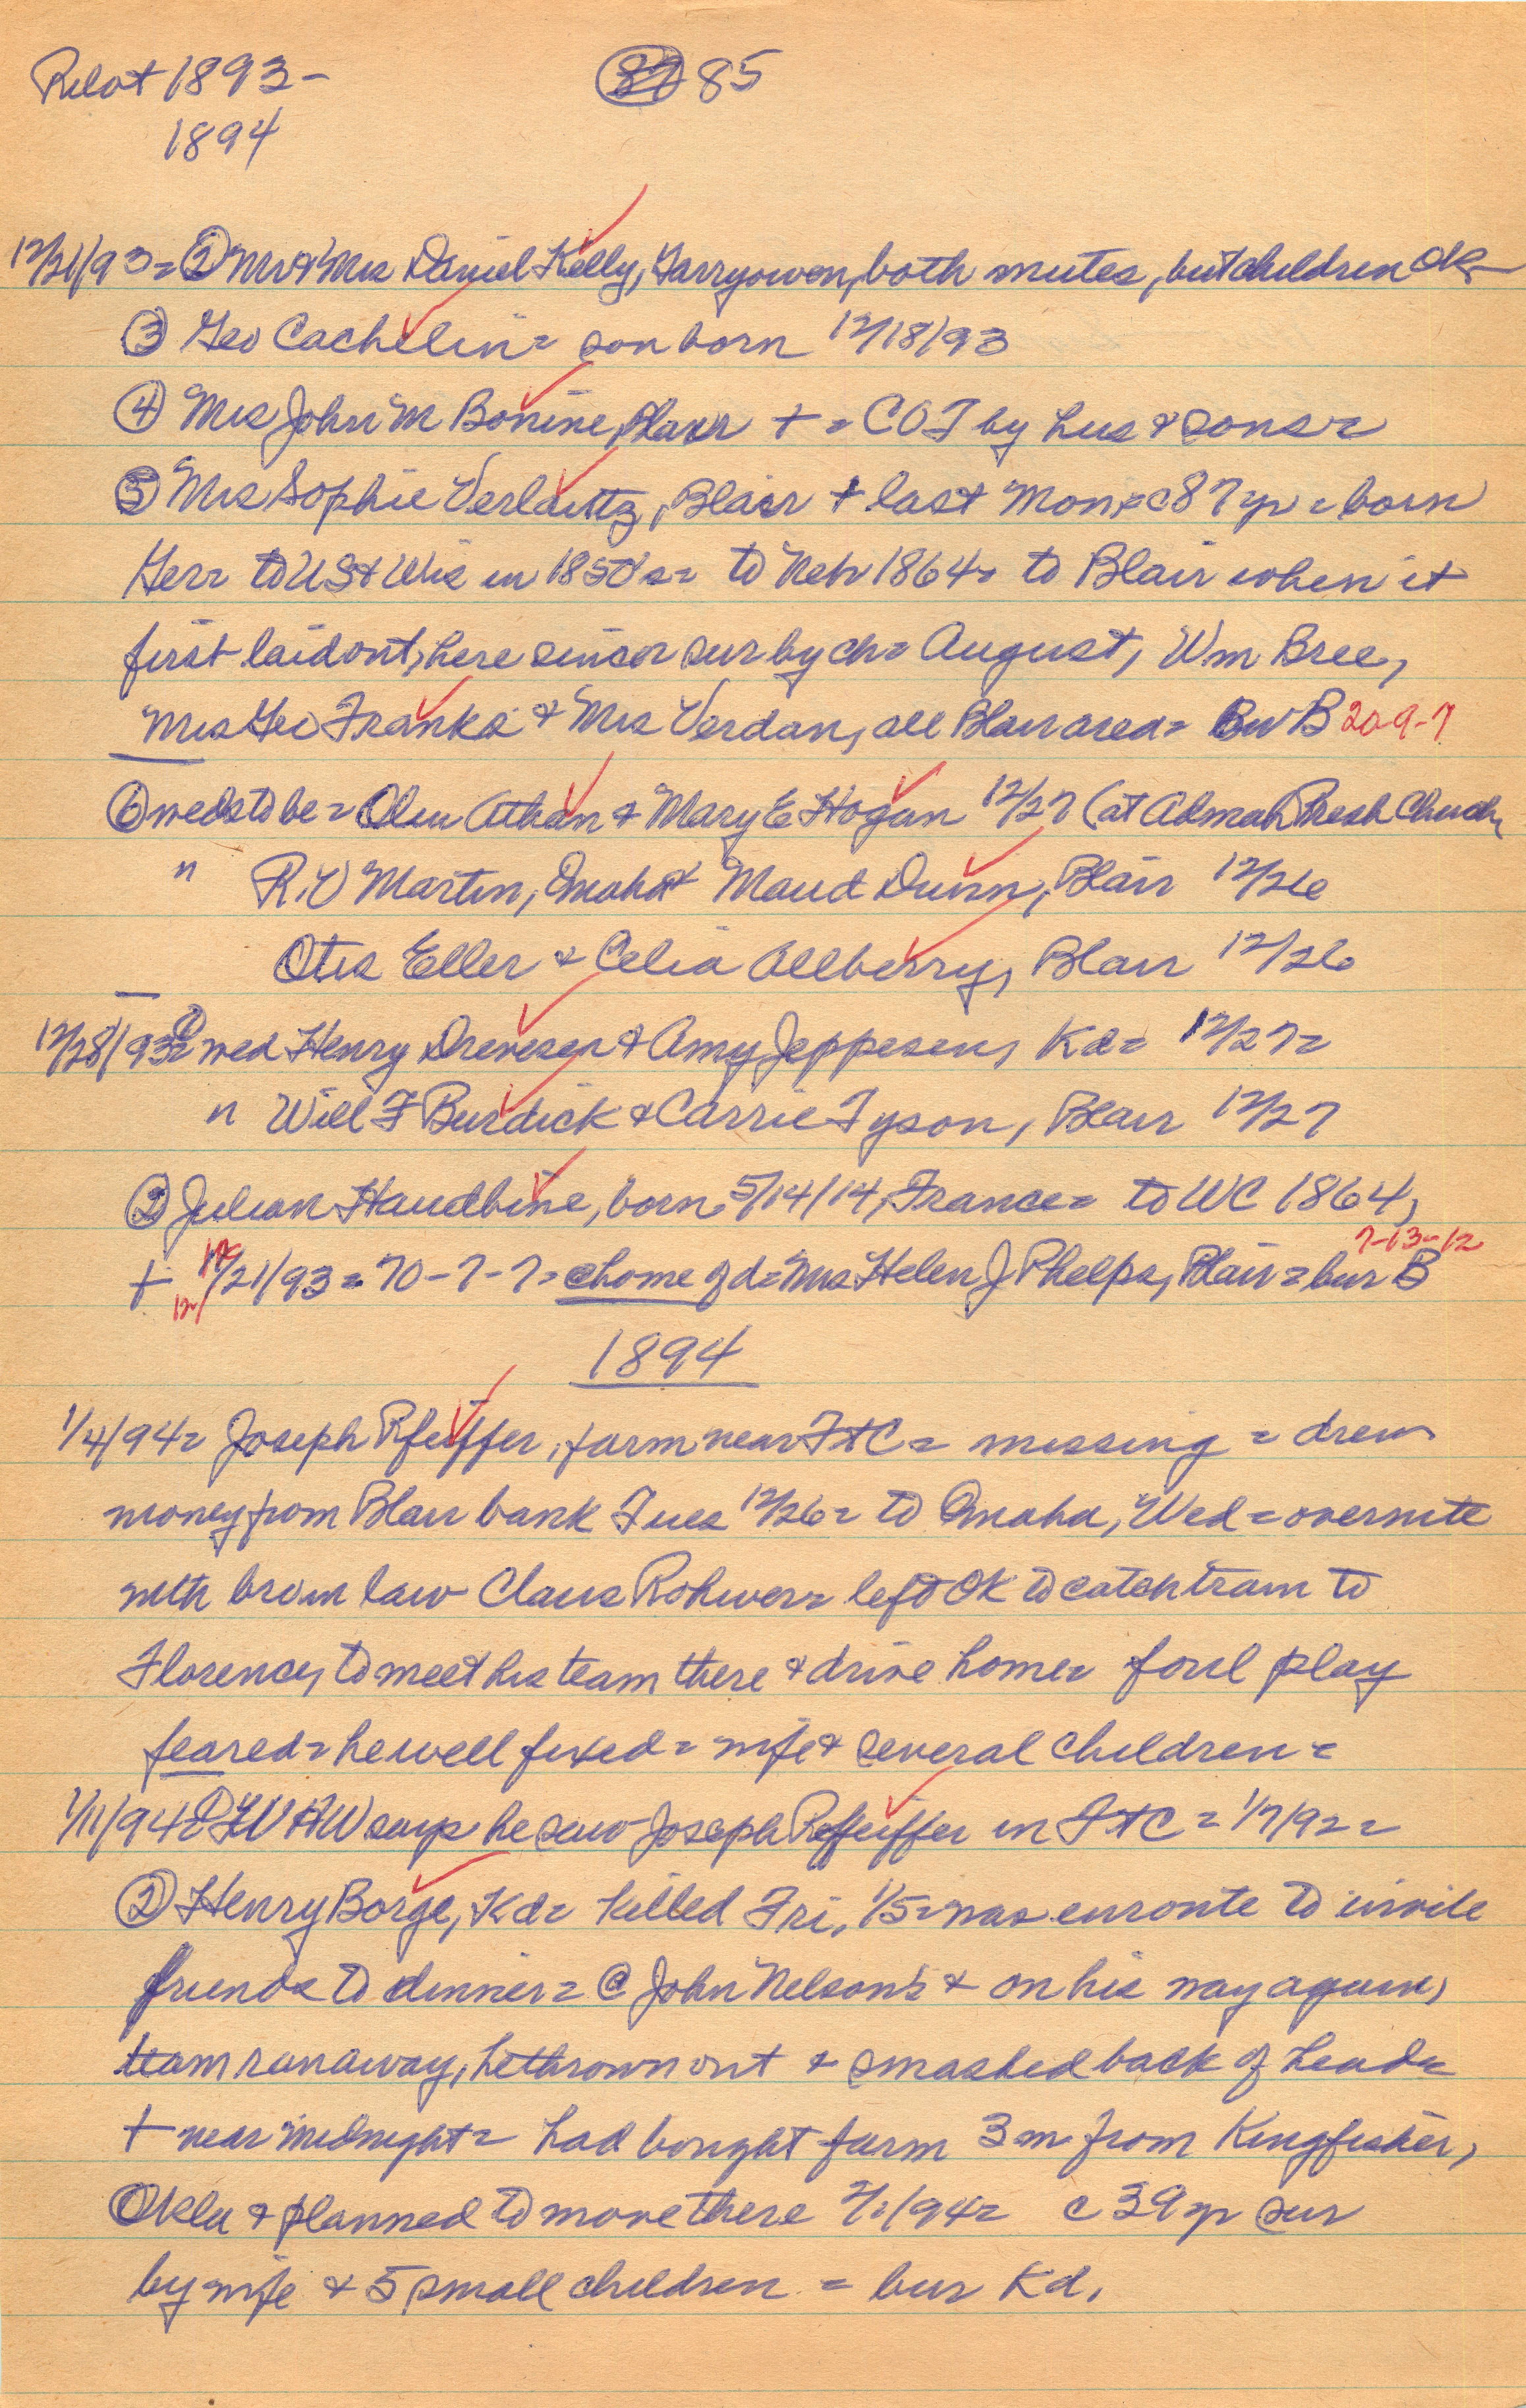 Pilot 1893- 85
1894
12/21/93= ② Mr & Mrs Daniel Kelly, Garryowen, both mutes, but children ok-
③ Geo Cachelin= son born 12/18/93
④ Mrs John M Bonine, Blair + = COT by hus & sons=
⑤ Mrs Sophie Verlauttz, Blair + last Mon= c87yr = born
Ger= to US & Wis in 1850's= to Neb 1864= to Blair when it
first laid out, here since= sur by ch= August, Wm Bree,
Mrs Geo Franks & Mrs Verdan, all Blair area= Bur B 20-9-7
⑥ weds to be= Olen Athan & Mary E Hogan 12/27 (at Admah Presb Church,
" R.V Martin, Omaha & Maud Dunn, Blair 12/26
Otis Eller & Celia Allberry, Blair 12/26
12/28/93= ① wed Henry Drevesen & Amy Jeppesen, Kd= 12/27=
" Will F Burdick & Carrie Tyson, Blair 12/27
② Julian Haudbine, born 5/14/14, France= to WC 1864,
+ /21/93= 70-7-7= @ home of d= Mrs Helen J Phelps, Blair= bur B 7-13-12
12/
1894
1/4/94= Joseph Pfeiffer, farm near FtC= missing = drew
money from Blair bank Tues 12/26= to Omaha, Wed= overnite
with bro in law Claus Rohwer= left OK to catch train to
Florence, to meet his team there & drive home= foul play
feared= he well fixed= wife & several children=
1/11/94= ① says he saw Joseph Pfeiffer in FtC= 1/7/92=
② Henry Borge, Kd= killed Fri, 1/5= was enroute to invite
friends to dinner= @ John Nelson's & on his way again,
team ranaway, he thrown out & smashed back of head=
+ near midnight= had bought farm 3 m from Kingfisher,
Okla & planned to move there 2/1/94= c39yr sur
by wife & 5 small children = bur Kd.